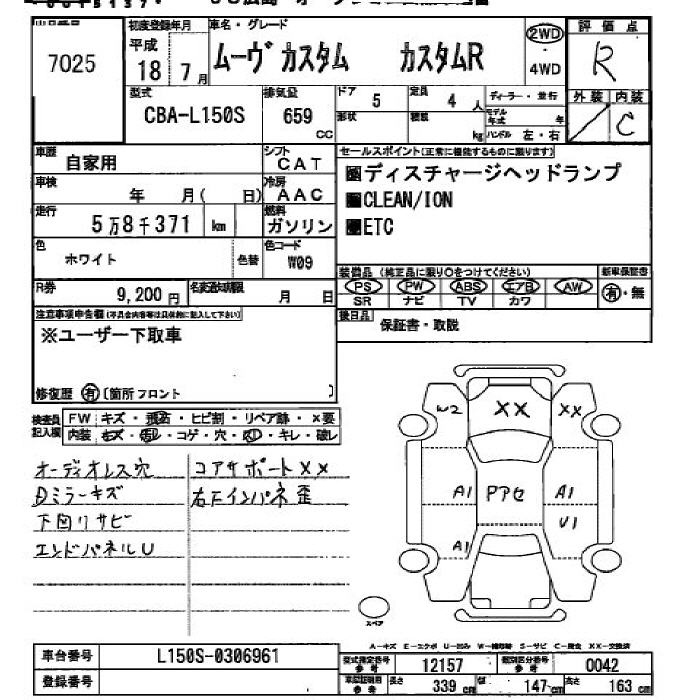 7025
初度登録年月
平成
18 7月
車名・グレード
ムーヴカスタム カスタムR
2WD
・
4WD
評価点
R
外装 内装
C
型式
CBA-L150S
排気量
659
CC
ドア
5
定員
4 人
ディーラー・並行
形状
積載
kg
モデル年式 年
ハンドル 左・右
車歴
自家用
シフト
CAT
車検
年 月( 日)
冷房
AAC
走行
5万8千371 km
燃料
ガソリン
色
ホワイト
色替
色コード
W09
R券
9,200円
名変期限
月 日
セールスポイント(正常に機能するものに限ります)
ディスチャージヘッドランプ
CLEAN/ION
ETC
装備品(純正品に限り○をつけてください)
PS PW ABS エアB AW
SR ナビ TV カワ
新車保証書
有・無
後日品
保証書・取説
注意事項申告欄(不具合内容等は具体的に記入して下さい)
※ユーザー下取車
修復歴 有 (箇所フロント )
検査員記入欄
FW キズ・飛石・ヒビ割・リペア跡・×要
内装 キズ・汚レ・コゲ・穴・スレ・キレ・破レ
オーディオレス穴
Dミラーキズ
下回リサビ
エンドパネルU
コアサポートXX
右Fインパネ歪
W2
XX
XX
A1
Pアセ
A1
U1
A1
スペア
A-キズ E-エクボ U-凹み W-補修跡 S-サビ C-腐食 XX-交換済
車台番号
L150S-0306961
登録番号
型式指定番号
参考
12157
類別区分番号
参考
0042
車庫証明用
参考
長さ
339 cm
147 cm
高さ
163 cm